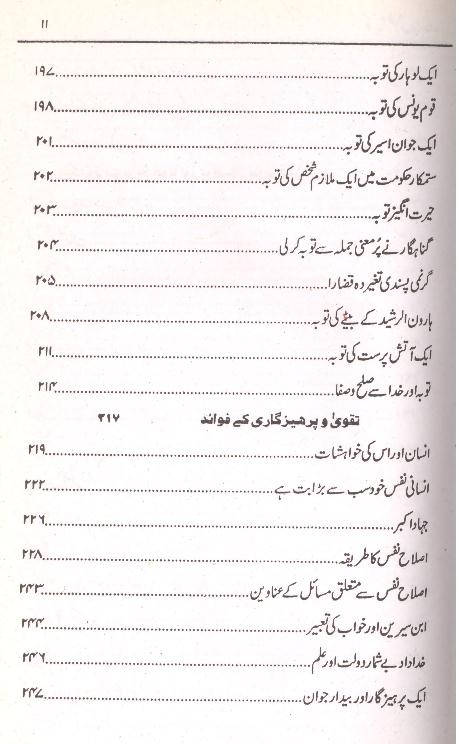 ۱۱
ایک لوہار کی توبہ ۱۹۷
قوم یونس کی توبہ ۱۹۸
ایک جوان اسیر کی توبہ ۲۰۱
ستمکار حکومت میں ایک ملازم شخص کی توبہ ۲۰۲
حیرت انگیز توبہ ۲۰۳
گناہگار نے پُر معنی جملہ سے توبہ کرلی ۲۰۴
گر نمی پسندی تغیر دہ قضا را ۲۰۵
ہارون الرشید کے بیٹے کی توبہ ۲۰۸
ایک آتش پرست کی توبہ ۲۱۱
توبہ اور خدا سے صلح و صفا ۲۱۴
تقویٰ و پرہیزگاری کے فوائد ۲۱۷
انسان اور اس کی خواہشات ۲۱۹
انسانی نفس خود سب سے بڑا بت ہے ۲۲۲
جہاد اکبر ۲۲۶
اصلاح نفس کا طریقہ ۲۲۸
اصلاح نفس سے متعلق مسائل کے عناوین ۲۴۳
ابن سیرین اور خواب کی تعبیر ۲۴۴
خداداد بے شمار دولت اور علم ۲۴۶
ایک پرہیزگار اور بیدار جوان ۲۴۷